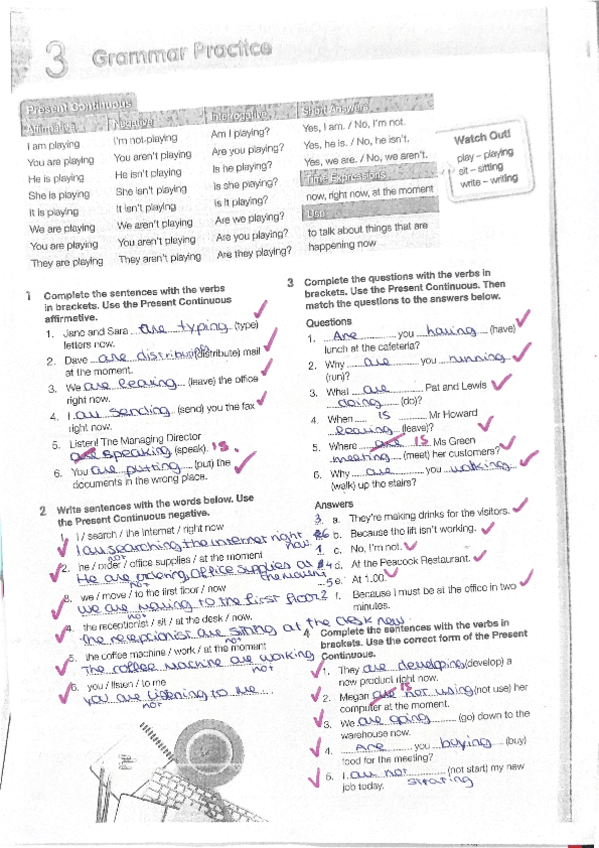 3 Grammar Practice
Present Continuous
Affirmative Negative Interrogative Short Answers
I am playing I'm not playing Am I playing? Yes, I am. / No, I'm not.
You are playing You aren't playing Are you playing? Yes, he is. / No, he isn't.
He is playing He isn't playing Is he playing? Yes, we are. / No, we aren't.
She is playing She isn't playing Is she playing? Time Expressions
It is playing It isn't playing Is it playing? now, right now, at the moment
We are playing We aren't playing Are we playing? Use
You are playing You aren't playing Are you playing? to talk about things that are
They are playing They aren't playing Are they playing? happening now
Watch Out!
play – playing
sit – sitting
write – writing
1 Complete the sentences with the verbs
in brackets. Use the Present Continuous
affirmative.
1. Jane and Sara are typing (type)
letters now.
2. Dave are distributing (distribute) mail
at the moment.
3. We are leaving (leave) the office
right now.
4. I au sending (send) you the fax
right now.
5. Listen! The Managing Director
are speaking (speak). is.
6. You are putting (put) the
documents in the wrong place.
2 Write sentences with the words below. Use
the Present Continuous negative.
1. I / search / the Internet / right now
I au searching the internet right
not now
2. he / order / office supplies / at the moment
He are ordering, office supplies at
not the moment
3. we / move / to the first floor / now
we are moving to the first floor?
not
4. the receptionist / sit / at the desk / now.
the receptionist are sitting at the desk now
not
5. the coffee machine / work / at the moment
The coffee machine are working
not
6. you / listen / to me
you are listening to me
not
3 Complete the questions with the verbs in
brackets. Use the Present Continuous. Then
match the questions to the answers below.
Questions
1. Are you having (have)
lunch at the cafeteria?
2. Why are you running
(run)?
3. What are Pat and Lewis
doing (do)?
4. When is Mr Howard
leaving (leave)?
5. Where are is Ms Green
meeting (meet) her customers?
6. Why are you walking
(walk) up the stairs?
Answers
3. a. They're making drinks for the visitors.
6 b. Because the lift isn't working.
1 c. No, I'm not.
4 d. At the Peacock Restaurant.
5 e. At 1.00.
2 f. Because I must be at the office in two
minutes.
4 Complete the sentences with the verbs in
brackets. Use the correct form of the Present
Continuous.
1. They are developing (develop) a
new product right now.
2. Megan are is not using (not use) her
computer at the moment.
3. We are going (go) down to the
warehouse now.
4. Are you buying (buy)
food for the meeting?
5. I au not (not start) my new
job today. staring